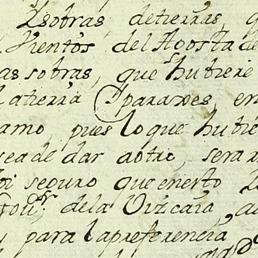 Zsobras detierras, q
Vientos del Agosta de
as sobras, que hubiere
la tierra Sparaxes, en
amo, pues lo que hubie
sea de dar aotro, sera
seguro que enesto
Gour. de la Vizcaia, a
para lapreferencia,